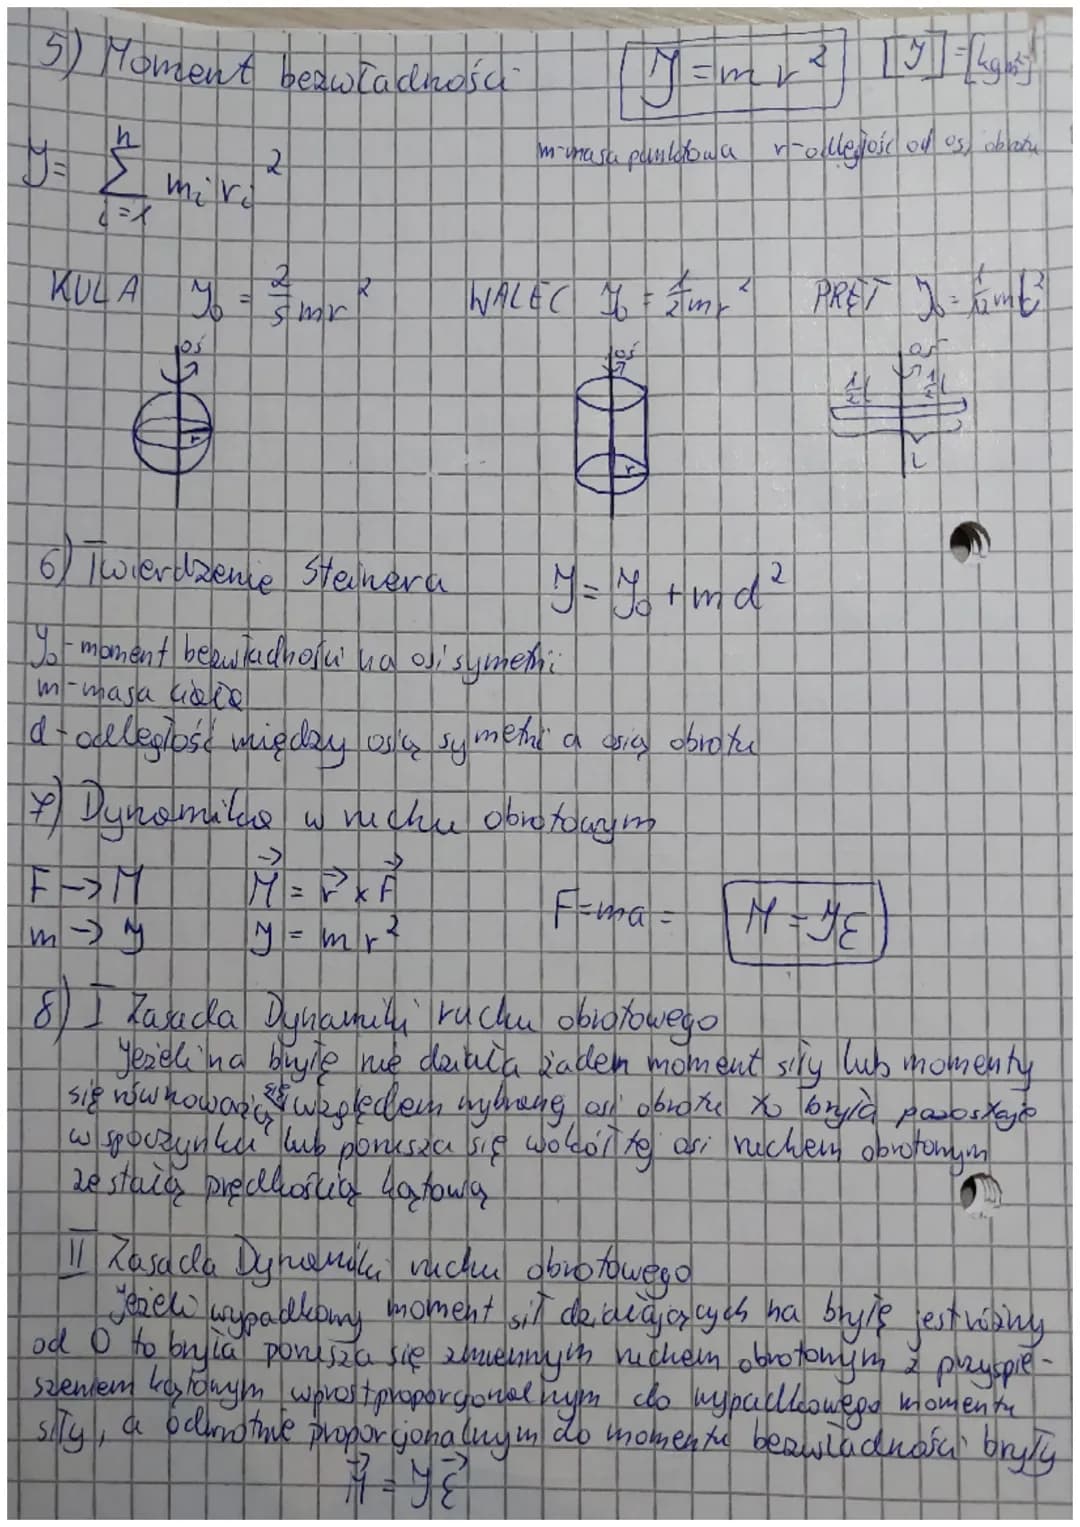 5) Moment bezwładności
J = m r² [J] = [kg m²]
m-masa punktowa r-odległość od osi obrotu
J = n Σ i=1 mᵢ rᵢ²
KULA J₀ = 2/5 mr² WALEC J₀ = 1/2 mr² PRĘT J₀ = 1/12 mL²
oś oś oś
1/2 l 1/2 l
r r L
6) Twierdzenie Steinera J = J₀ + m d²
J₀ - moment bezwładności na osi symetrii
m - masa ciała
d - odległość między osią symetrii a osią obrotu
7) Dynamika w ruchu obrotowym
F → M M⃗ = r⃗ x F⃗ F = ma = M = Jε
m → J J = m r²
8) I Zasada Dynamiki ruchu obrotowego
Jeżeli na bryłę nie działa żaden moment siły lub momenty
się równoważą względem wybranej osi obrotu to bryła pozostaje
w spoczynku lub porusza się wokół tej osi ruchem obrotowym
ze stałą prędkością kątową
II Zasada Dynamiki ruchu obrotowego
Jeżeli wypadkowy moment sił działających na bryłę jest różny
od 0 to bryła porusza się zmiennym ruchem obrotowym z przyspie-
szeniem kątowym wprostproporcjonalnym do wypadkowego momentu
siły, a odwrotnie proporcjonalnym do momentu bezwładności bryły
M⃗ = J ε⃗